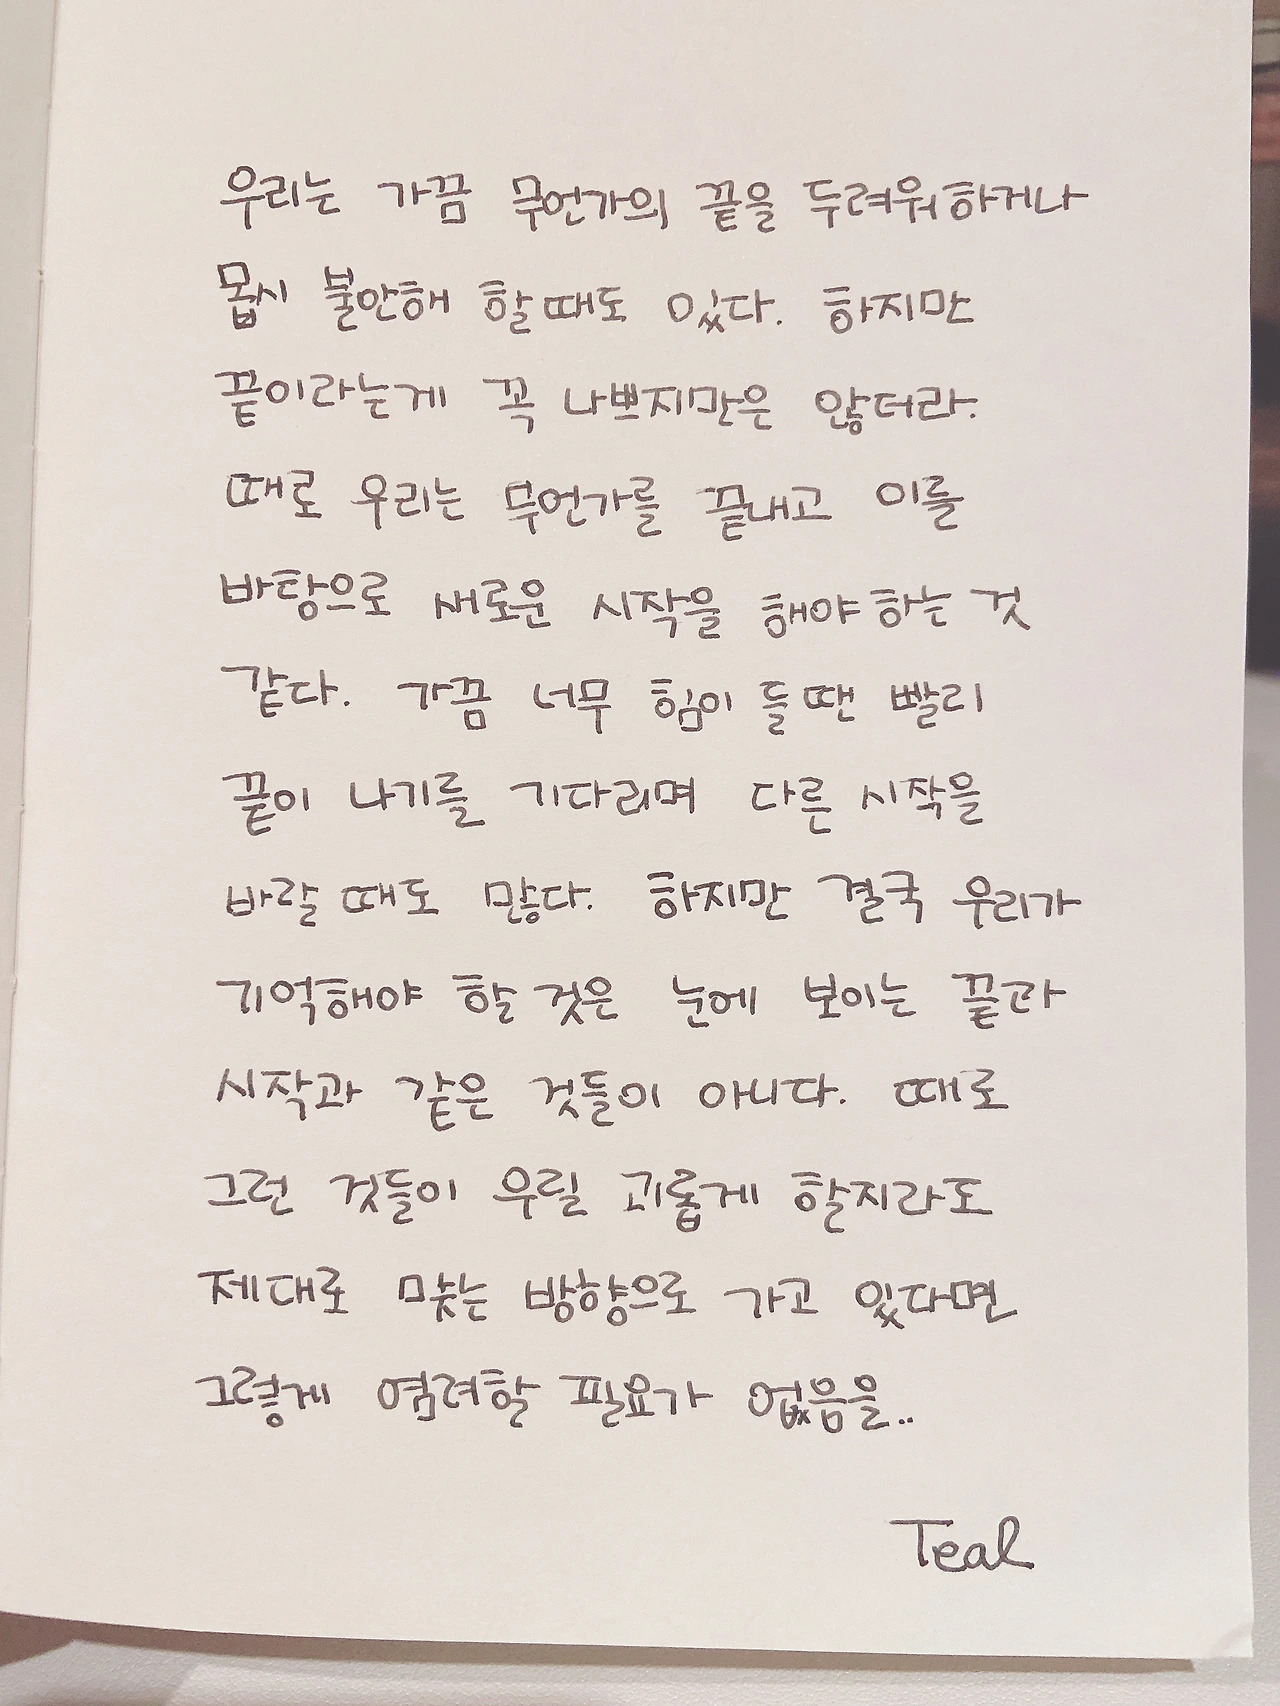 우리는 가끔 무언가의 끝을 두려워하거나
몹시 불안해 할 때도 있다. 하지만
끝이라는게 꼭 나쁘지만은 않더라.
때로 우리는 무언가를 끝내고 이를
바탕으로 새로운 시작을 해야 하는 것
같다. 가끔 너무 힘이 들 땐 빨리
끝이 나기를 기다리며 다른 시작을
바랄 때도 많다. 하지만 결국 우리가
기억해야 할 것은 눈에 보이는 끝과
시작과 같은 것들이 아니다. 때로
그런 것들이 우릴 괴롭게 할지라도
제대로 맞는 방향으로 가고 있다면
그렇게 염려할 필요가 없음을..
Teal